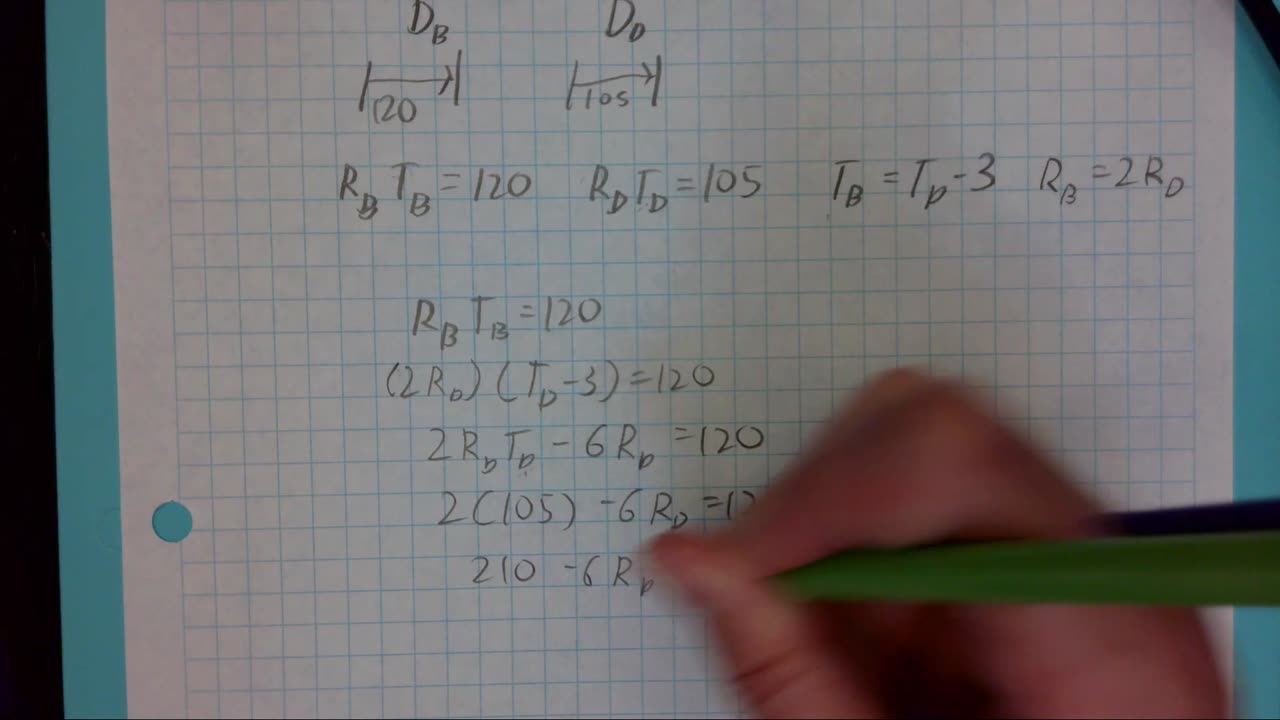 D_B D_D
120 105
R_B T_B = 120 R_D T_D = 105 T_B = T_D - 3 R_B = 2R_D
R_B T_B = 120
(2R_D)(T_D - 3) = 120
2R_D T_D - 6R_D = 120
2(105) - 6R_D = 12
210 - 6R_D